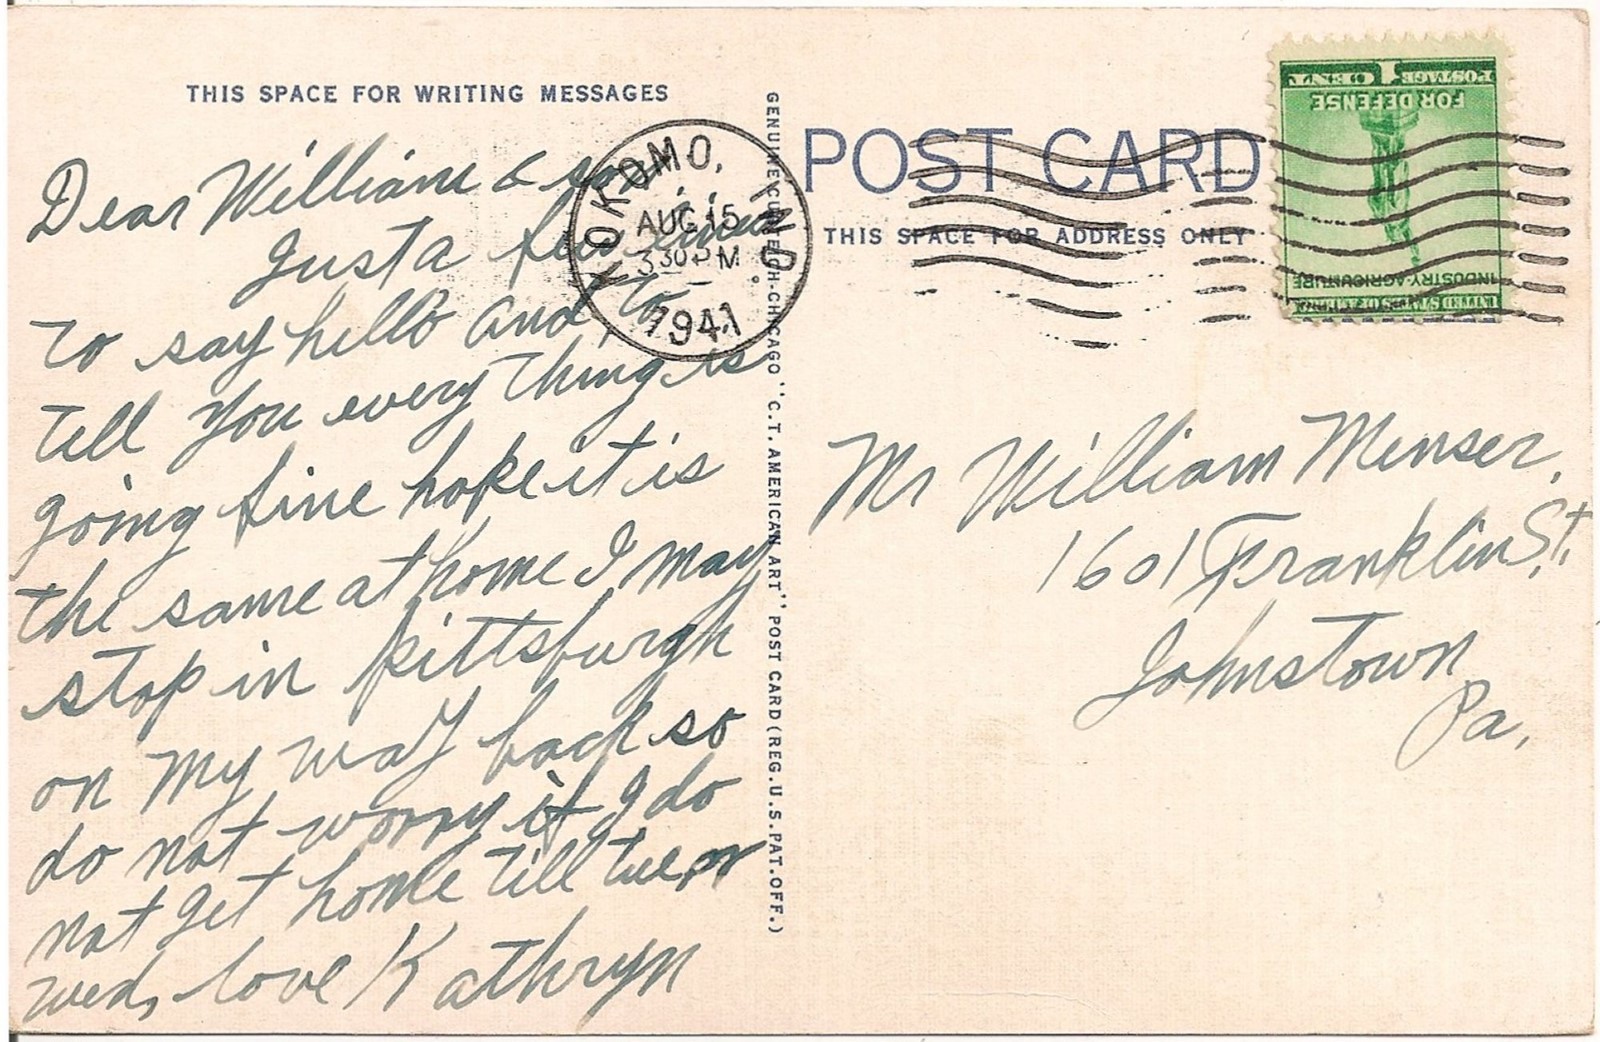 THIS SPACE FOR WRITING MESSAGES
Dear William & son
Just a few lines
to say hello and to
tell you every thing is
going fine hope it is
the same at home I may
stop in pittsburgh
on my way back so
do not worry if I do
not get home till tue, or
wed, love Kathryn
KOKOMO, IND.
AUG 15
3 30 PM
1941
GENUINE CURTEICH-CHICAGO "C.T. AMERICAN ART" POST CARD (REG. U.S. PAT. OFF.)
POST CARD
THIS SPACE FOR ADDRESS ONLY
UNITED STATES OF AMERICA
INDUSTRY AGRICULTURE
FOR DEFENSE
1 CENT POSTAGE
Mr William Menser,
1601 Franklin St,
Johnstown
Pa,